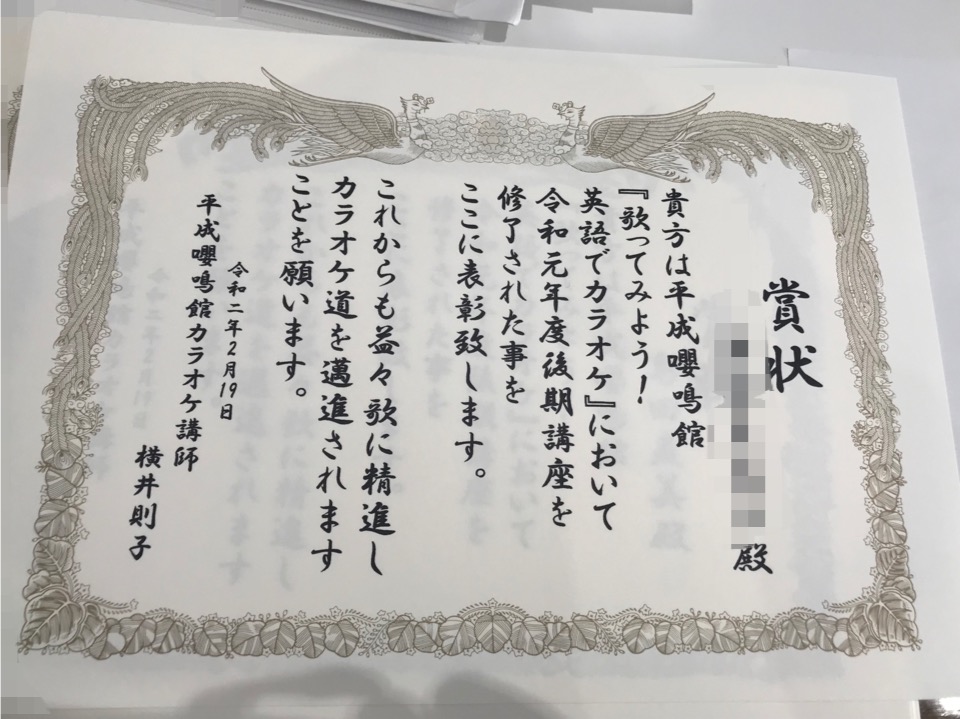 賞状
殿
貴方は平成嚶鳴館
『歌ってみよう！
英語でカラオケ』において
令和元年度後期講座を
修了された事を
ここに表彰致します。
これからも益々歌に精進し
カラオケ道を邁進されます
ことを願います。
令和二年2月19日
平成嚶鳴館カラオケ講師
横井則子